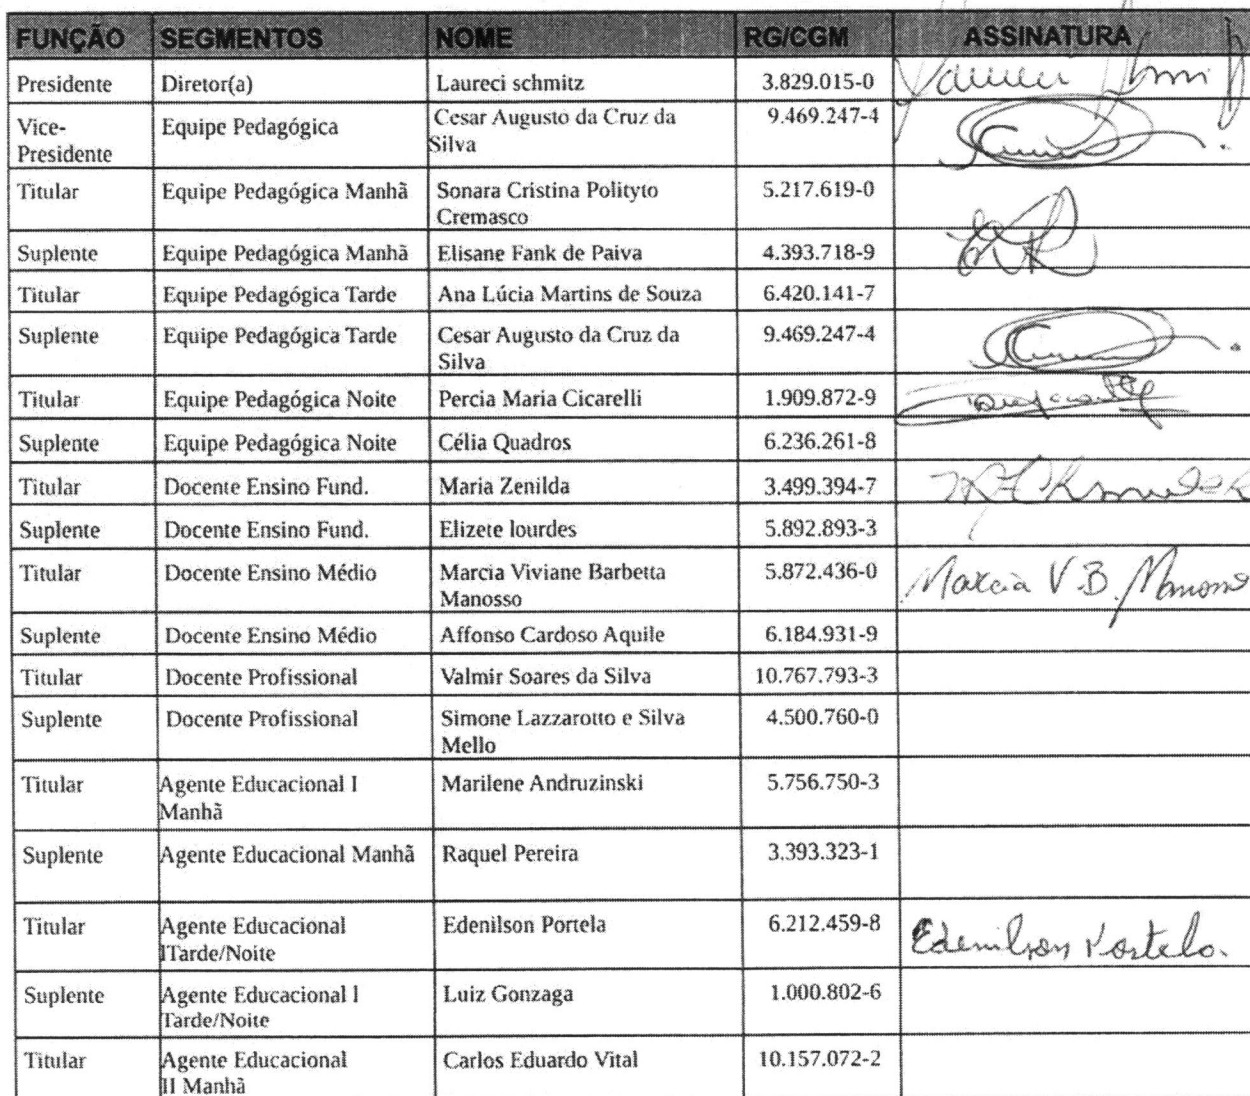 FUNÇÃO SEGMENTOS NOME RG/CGM ASSINATURA
Presidente Diretor(a) Laureci schmitz 3.829.015-0
Vice- Equipe Pedagógica Cesar Augusto da Cruz da 9.469.247-4
Presidente Silva
Titular Equipe Pedagógica Manhã Sonara Cristina Polityto 5.217.619-0
Cremasco
Suplente Equipe Pedagógica Manhã Elisane Fank de Paiva 4.393.718-9
Titular Equipe Pedagógica Tarde Ana Lúcia Martins de Souza 6.420.141-7
Suplente Equipe Pedagógica Tarde Cesar Augusto da Cruz da 9.469.247-4
Silva
Titular Equipe Pedagógica Noite Percia Maria Cicarelli 1.909.872-9
Suplente Equipe Pedagógica Noite Célia Quadros 6.236.261-8
Titular Docente Ensino Fund. Maria Zenilda 3.499.394-7
Suplente Docente Ensino Fund. Elizete lourdes 5.892.893-3
Titular Docente Ensino Médio Marcia Viviane Barbetta 5.872.436-0 Marcia V.B.
Manosso
Suplente Docente Ensino Médio Affonso Cardoso Aquile 6.184.931-9
Titular Docente Profissional Valmir Soares da Silva 10.767.793-3
Suplente Docente Profissional Simone Lazzarotto e Silva 4.500.760-0
Mello
Titular Agente Educacional I Marilene Andruzinski 5.756.750-3
Manhã
Suplente Agente Educacional Manhã Raquel Pereira 3.393.323-1
Titular Agente Educacional Edenilson Portela 6.212.459-8 Edenilson Portela.
ITarde/Noite
Suplente Agente Educacional I Luiz Gonzaga 1.000.802-6
Tarde/Noite
Titular Agente Educacional Carlos Eduardo Vital 10.157.072-2
II Manhã